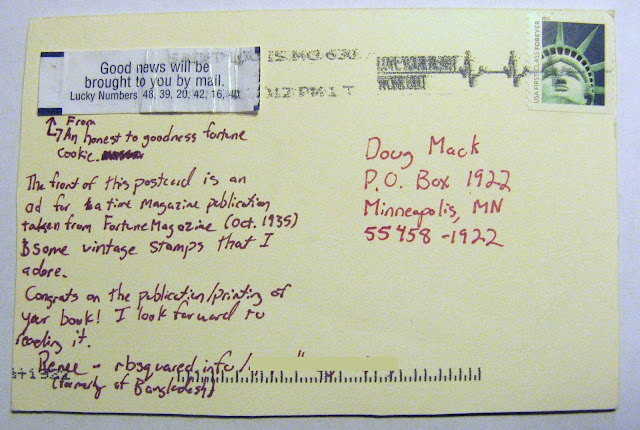 Good news will be
brought to you by mail.
Lucky Numbers 48, 39, 20, 42, 16, 40
From
An honest to goodness fortune
cookie.
The front of this postcard is an
ad for a time Magazine publication
taken from Fortune Magazine (Oct. 1935)
& some vintage stamps that I
adore.
Congrats on the publication/printing of
your book! I look forward to
reading it.
Renee - rbsquared.info/
(formerly of Bangladesh)
LOUIS MO 630
PM 1 T
USA FIRST-CLASS FOREVER
Doug Mack
P.O. Box 1922
Minneapolis, MN
55458-1922